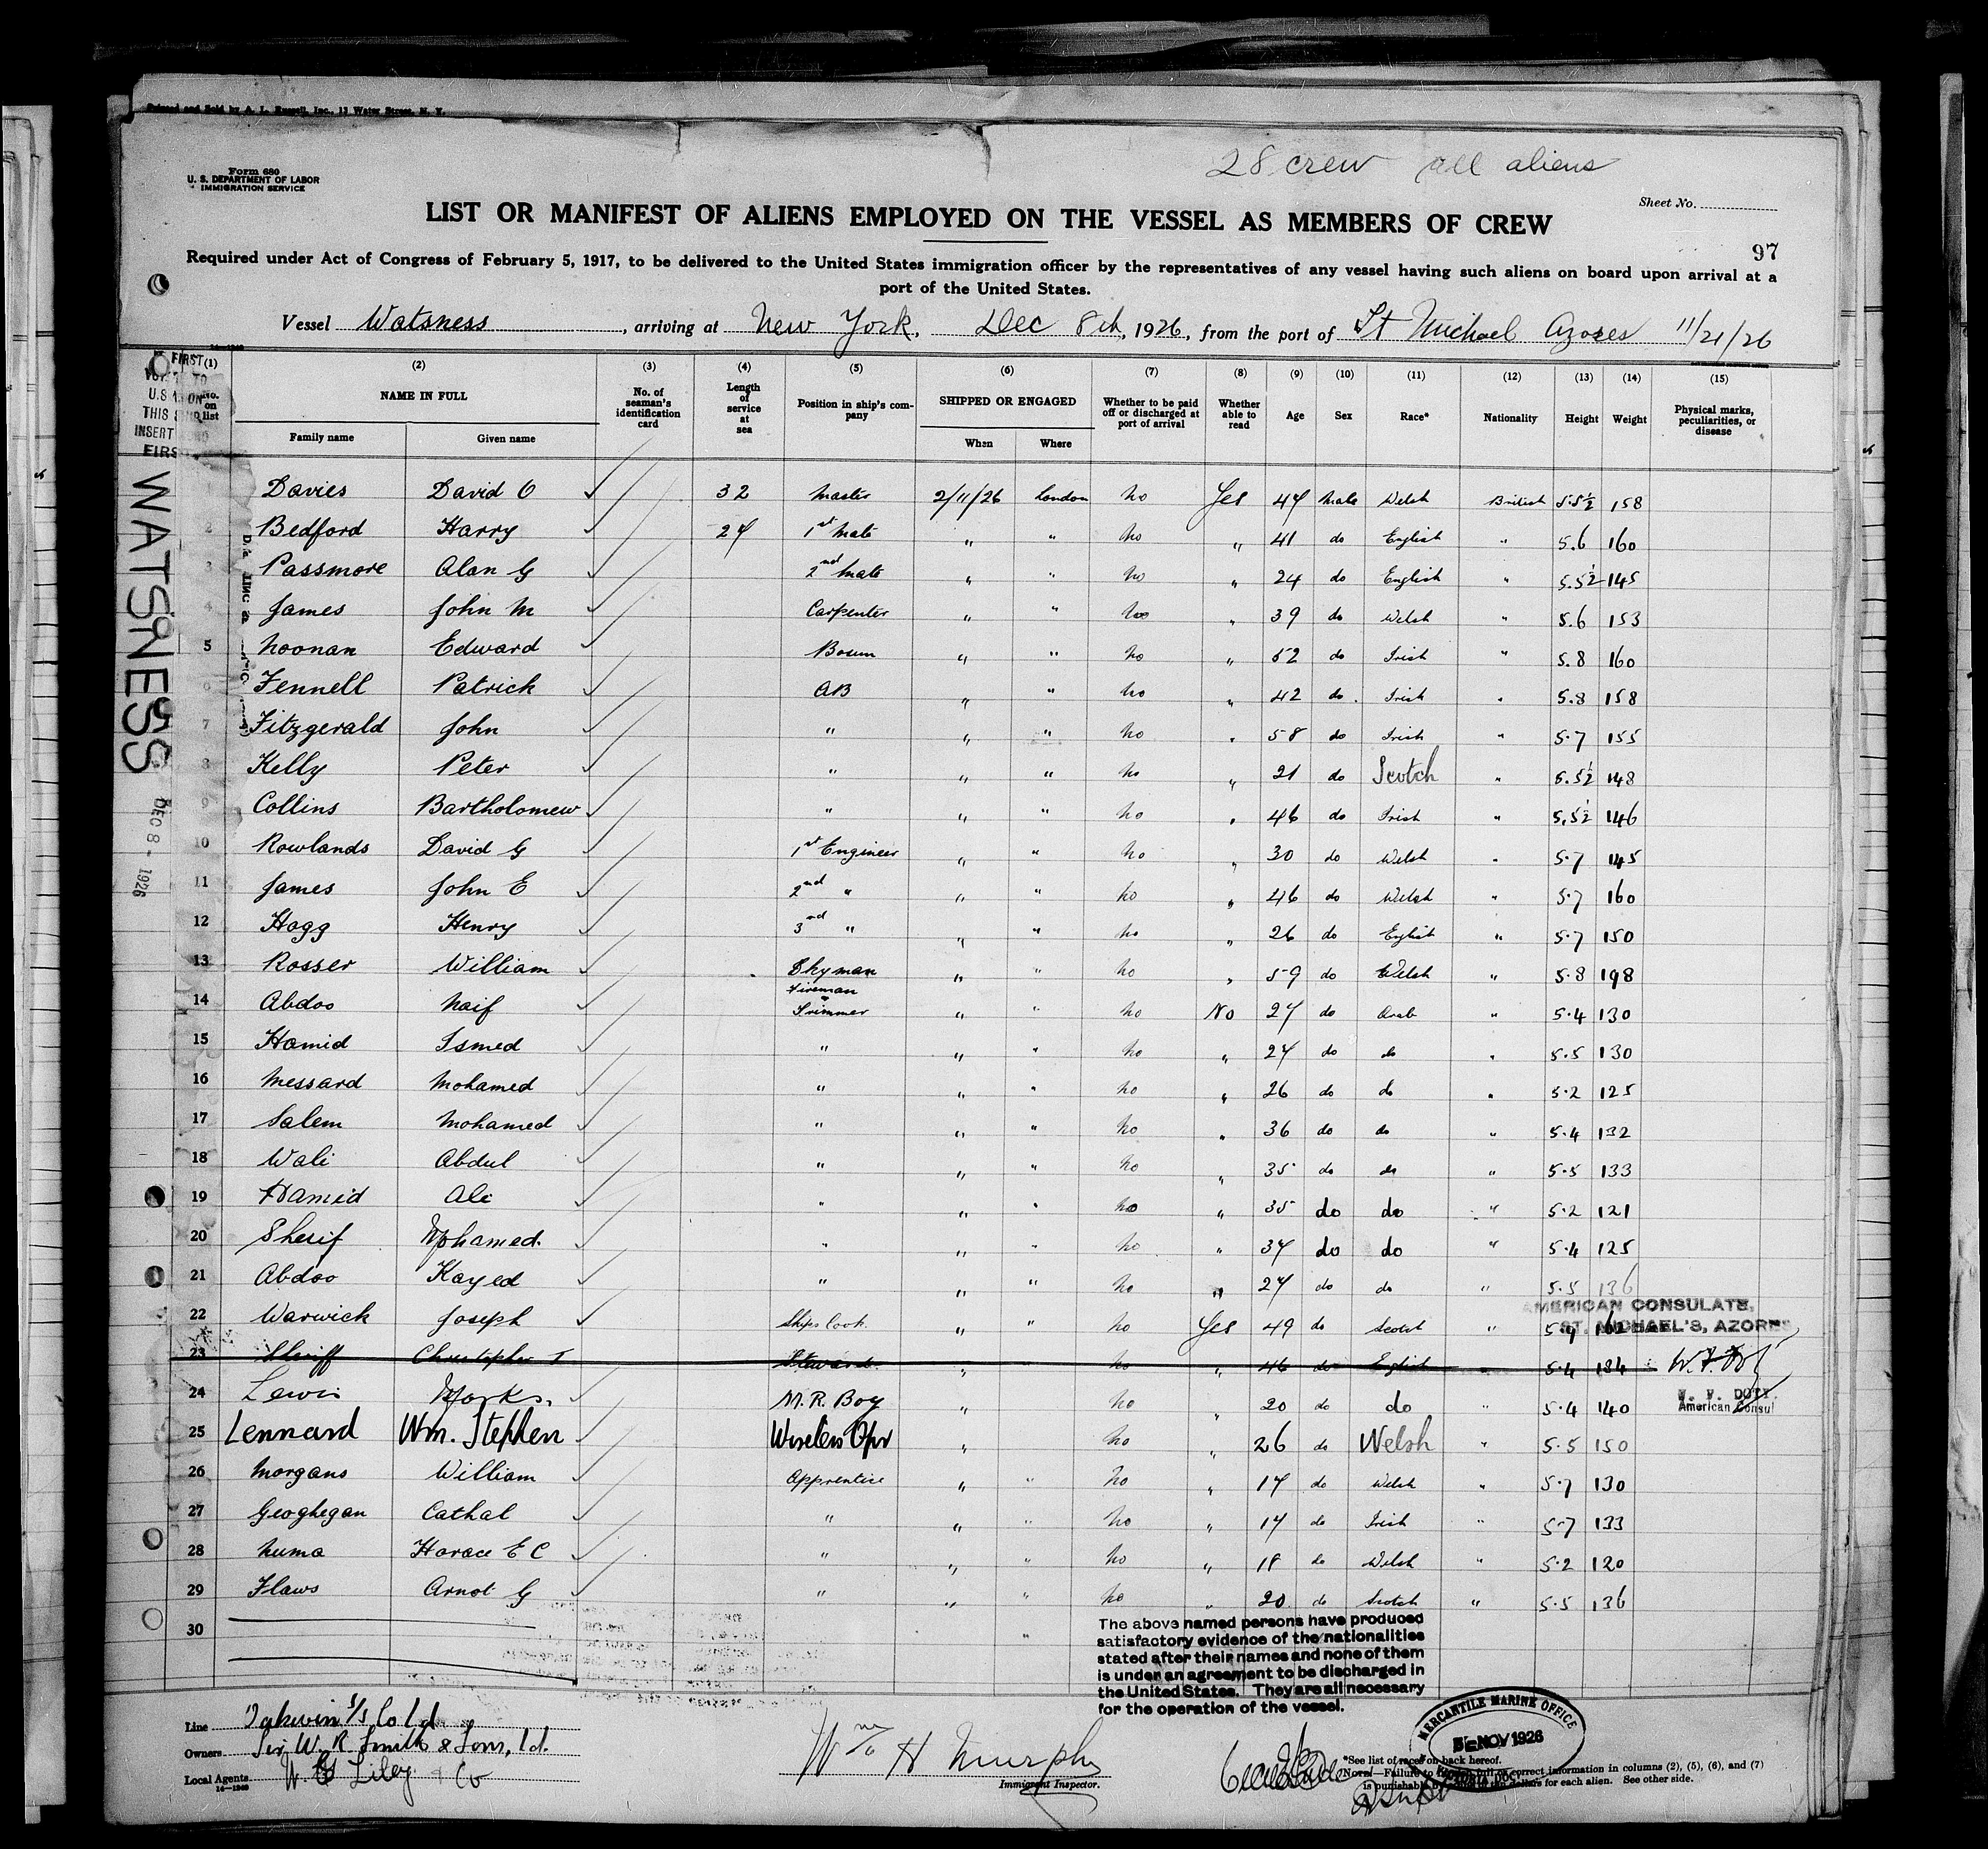 Printed and Sold by A. L. Russell, Inc., 13 Water Street, N. Y.
28 crew all aliens
Form 680
U. S. DEPARTMENT OF LABOR
IMMIGRATION SERVICE
Sheet No.
LIST OR MANIFEST OF ALIENS EMPLOYED ON THE VESSEL AS MEMBERS OF CREW
97
Required under Act of Congress of February 5, 1917, to be delivered to the United States immigration officer by the representatives of any vessel having such aliens on board upon arrival at a
port of the United States.
Vessel Watsness, arriving at New York, Dec 8th, 1926, from the port of St Michael Azores 11/21/26
(1) (2) (3) (4) (5) (6) (7) (8) (9) (10) (11) (12) (13) (14) (15)
No. on list NAME IN FULL No. of seaman's identification card Length of service at sea Position in ship's company SHIPPED OR ENGAGED Whether to be paid off or discharged at port of arrival Whether able to read Age Sex Race* Nationality Height Weight Physical marks, peculiarities, or disease
Family name Given name When Where
WATSNESS
DEC 8 - 1926
1 Davies David O 32 Master 2/11/26 London no Yes 47 Male Welsh British 5.5½ 158
2 Bedford Harry 27 1st Mate " " no " 41 do English " 5.6 160
3 Passmore Alan G 2nd Mate " " no " 24 do English " 5.5½ 145
4 James John M Carpenter " " no " 39 do Welsh " 5.6 153
5 Noonan Edward Bosun " " no " 52 do Irish " 5.8 160
6 Fennell Patrick AB " " no " 42 do Irish " 5.8 158
7 Fitzgerald John " " " no " 58 do Irish " 5.7 155
8 Kelly Peter " " " no " 21 do Scotch " 5.5½ 148
9 Collins Bartholomew " " " no " 46 do Irish " 5.5½ 146
10 Rowlands David G 1st Engineer " " no " 30 do Welsh " 5.7 145
11 James John E 2nd " " " no " 46 do Welsh " 5.7 160
12 Hogg Henry 3rd " " " no " 26 do English " 5.7 150
13 Rosser William Dkyman " " no " 59 do Welsh " 5.8 198
14 Abdoo Naif Fireman & Trimmer " " no No 27 do Arab " 5.4 130
15 Hamid Ismed " " " no " 27 do do " 5.5 130
16 Messard Mohamed " " " no " 26 do do " 5.2 125
17 Salem Mohamed " " " no " 36 do do " 5.4 132
18 Wali Abdul " " " no " 35 do do " 5.5 133
19 Hamid Ali " " " no " 35 do do " 5.2 121
20 Sherif Mohamed. " " " no " 37 do do " 5.4 125
21 Abdoo Kayed " " " no " 27 do do " 5.5 136
AMERICAN CONSULATE,
22 Warwick Joseph Ships Cook " " no Yes 49 do Scotch " 162
ST. MICHAEL'S, AZORES
23 Sheriff Christopher T Steward " no " 46 do English " 5.4 134
24 Lewis Marks. M. R. Boy " no " 20 do do " 5.4 140
W. F. DOTY.
American Consul
25 Lennard Wm. Stephen Wireless Opr " no " 26 do Welsh " 5.5 150
26 Morgans William Apprentice " " no " 17 do Welsh " 5.7 130
27 Geoghegan Cathal " " " no " 17 do Irish " 5.7 133
28 Numa Horace E C " " " no " 18 do Welsh " 5.2 120
29 Flaws Arnot G " " " no " 20 do Scotch " 5.5 136
30 "
The above named persons have produced
satisfactory evidence of the nationalities
stated after their names and none of them
is under an agreement to be discharged in
the United States. They are all necessary
for the operation of the vessel.
Line Takwin S/S Co Ld.
Owners Sir W. R. Smith & Sons, Ld.
Local Agents W. Liley & Co
14—1240
Wm H Murphy
Immigrant Inspector.
MERCANTILE MARINE OFFICE
5 NOV 1926
*See list of races on back hereof.
NOTE.—Failure to full or correct information in columns (2), (5), (6), and (7)
is punishable by dollars for each alien. See other side.